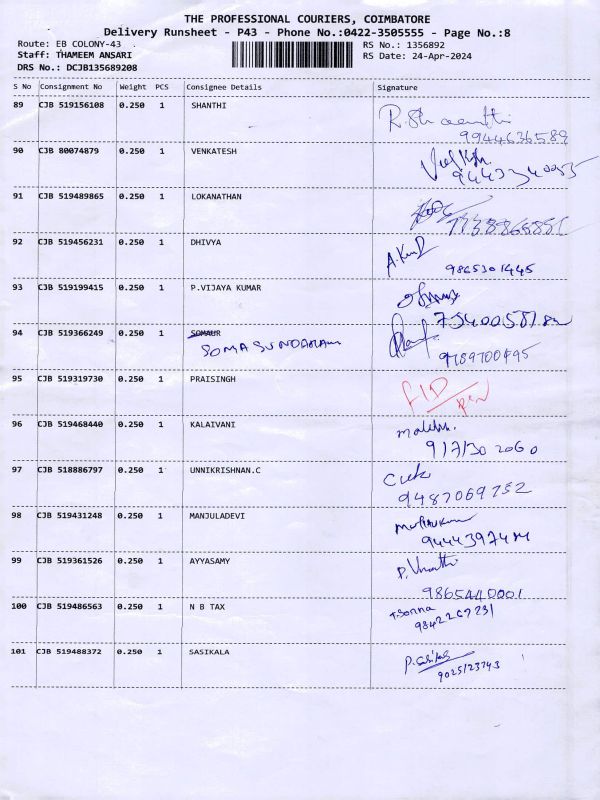 THE PROFESSIONAL COURIERS, COIMBATORE
Delivery Runsheet - P43 - Phone No.:0422-3505555 - Page No.:8
Route: EB COLONY-43 RS No.: 1356892
Staff: THAMEEM ANSARI RS Date: 24-Apr-2024
DRS No.: DCJB135689208
S No Consignment No Weight PCS Consignee Details Signature
89 CJB 519156108 0.250 1 SHANTHI
9944636589
90 CJB 80074879 0.250 1 VENKATESH
91 CJB 519489865 0.250 1 LOKANATHAN
92 CJB 519456231 0.250 1 DHIVYA
9865301445
93 CJB 519199415 0.250 1 P.VIJAYA KUMAR
94 CJB 519366249 0.250 1
SOMASUNDARAM
95 CJB 519319730 0.250 1 PRAISINGH
96 CJB 519468440 0.250 1 KALAIVANI
97 CJB 518886797 0.250 1 UNNIKRISHNAN.C
9487069752
98 CJB 519431248 0.250 1 MANJULADEVI
99 CJB 519361526 0.250 1 AYYASAMY
100 CJB 519486563 0.250 1 N B TAX
9842267231
101 CJB 519488372 0.250 1 SASIKALA
9025123743